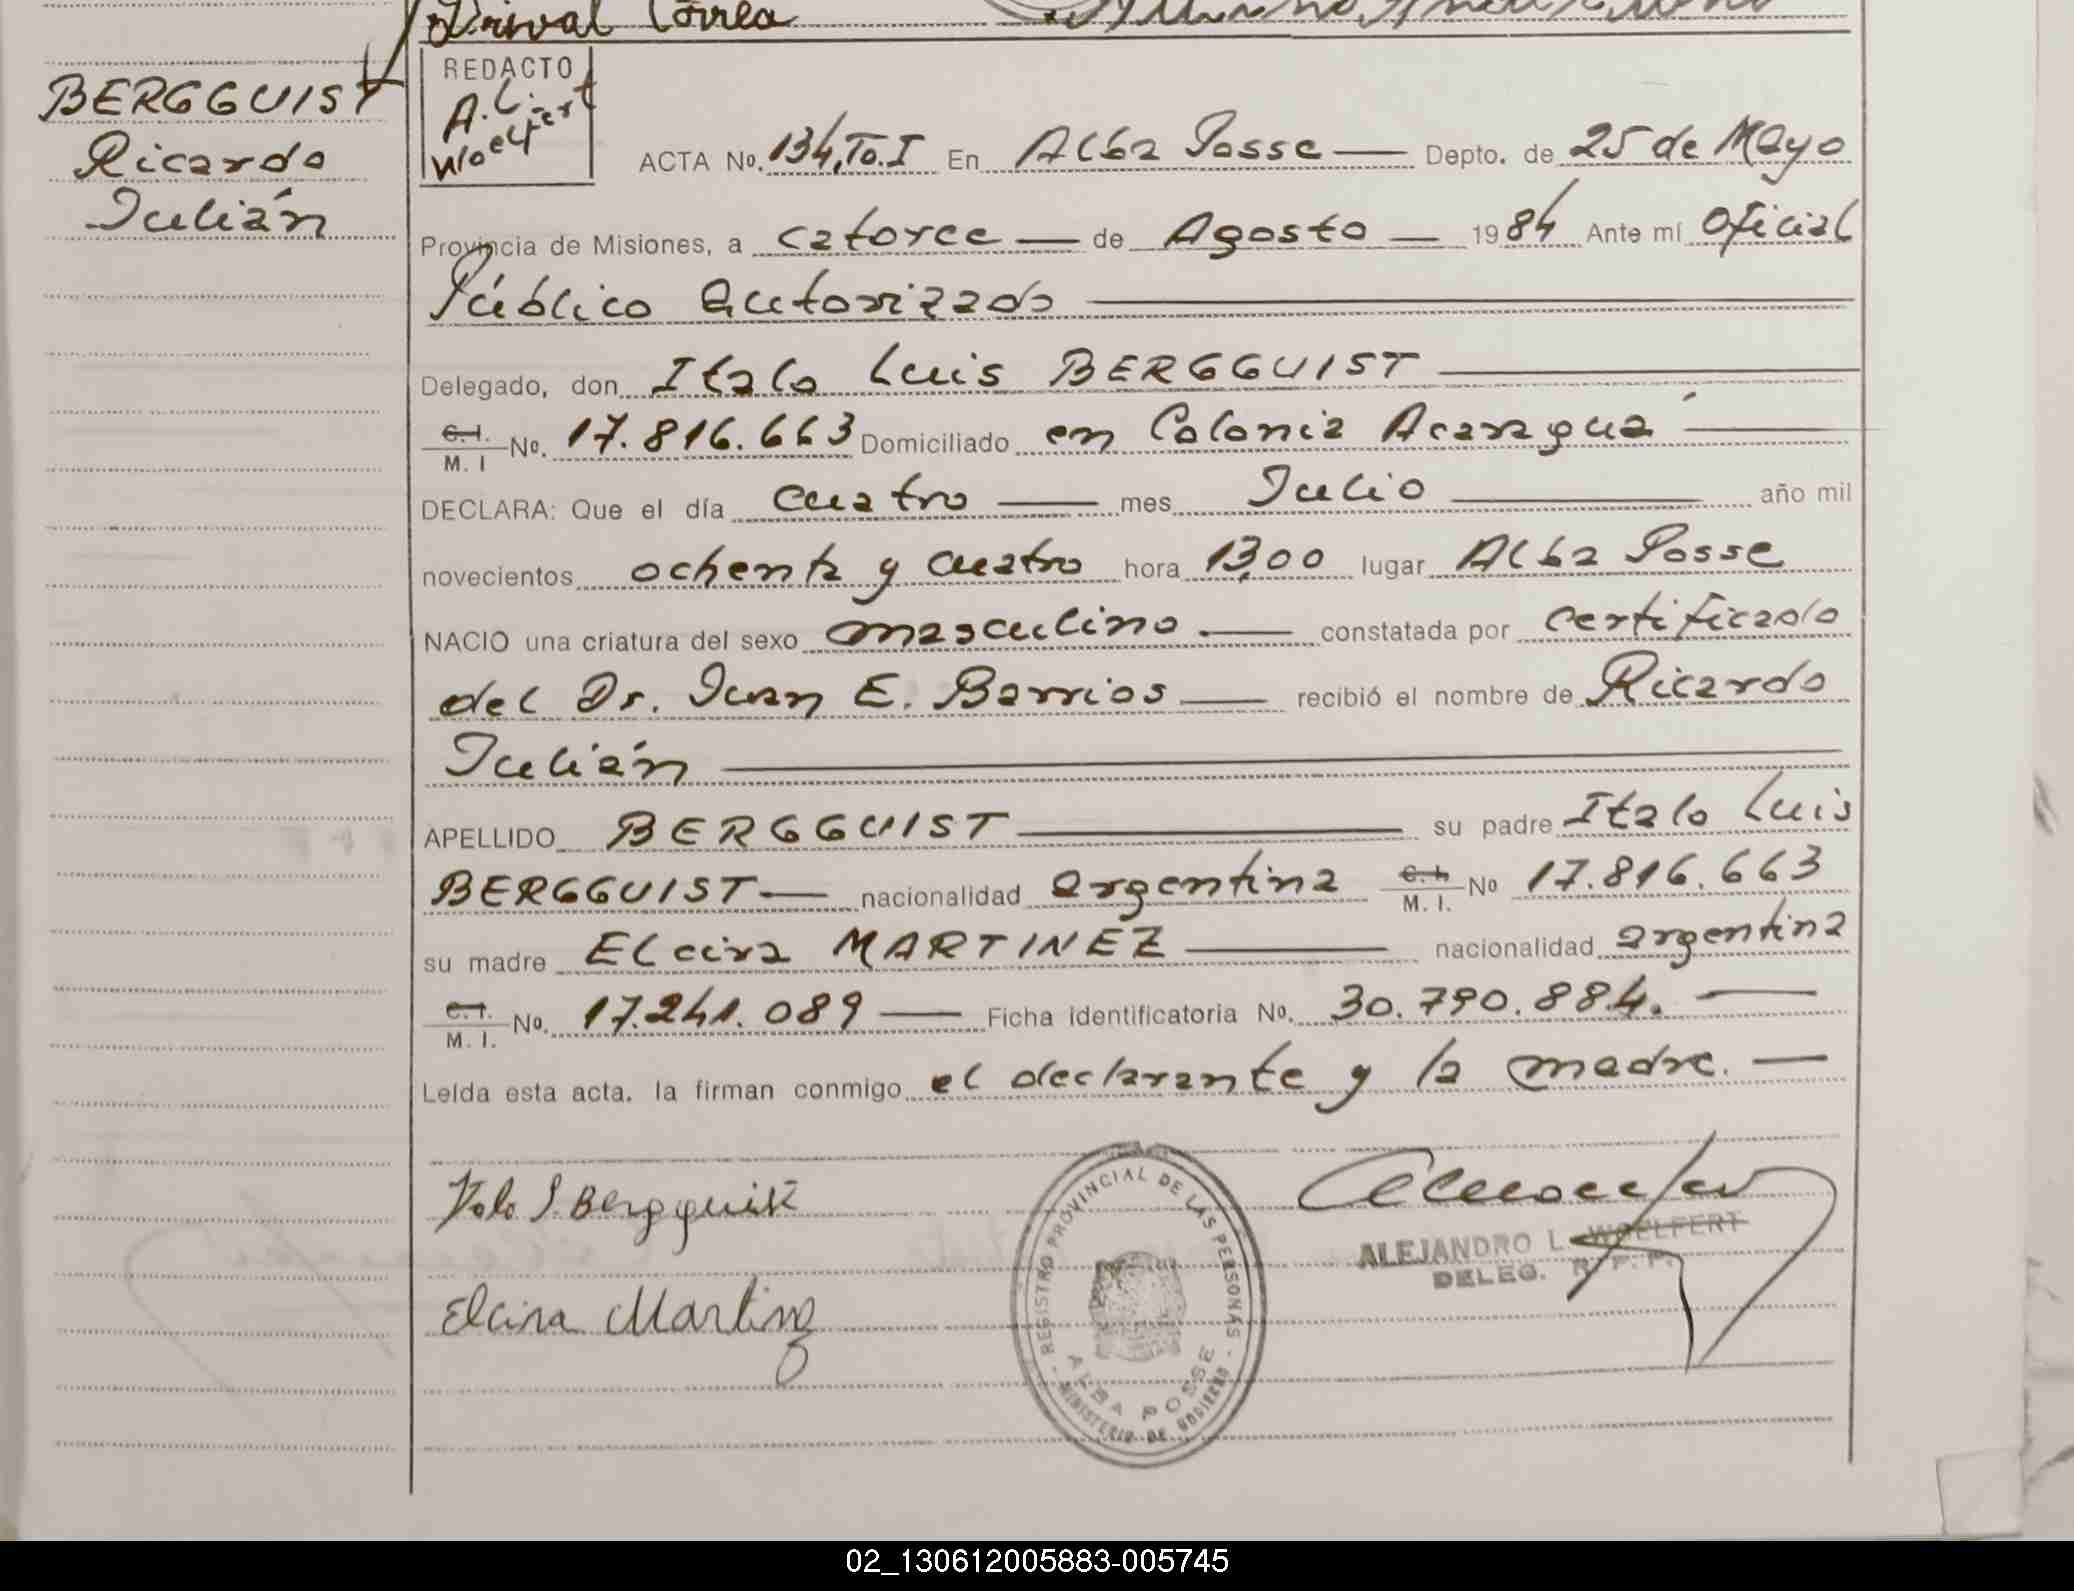 Orival Correa
BERGGUIST
Ricardo
Julián
REDACTO
A. L.
Woelfert
ACTA No. 134, To. I En Alba Posse — Depto. de 25 de Mayo
Provincia de Misiones, a catorce — de Agosto — 1984 Ante mí Oficial
Público autorizado
Delegado, don Italo Luis BERGGUIST
C. I.
M. I No. 17.816.663 Domiciliado en Colonia Acaraguá
DECLARA: Que el día cuatro — mes Julio — año mil
novecientos ochenta y cuatro hora 13,00 lugar Alba Posse
NACIO una criatura del sexo masculino. — constatada por certificado
del Dr. Juan E. Barrios — recibió el nombre de Ricardo
Julián
APELLIDO BERGGUIST — su padre Italo Luis
BERGGUIST — nacionalidad argentina C. I. M. I. No 17.816.663
su madre Elcira MARTINEZ — nacionalidad argentina
C. I.
M. I. No. 17.241.089 — Ficha identificatoria No. 30.790.884. —
Leída esta acta, la firman conmigo el declarante y la madre. —
Italo L. Bergquist
Elcira Martinez
REGISTRO PROVINCIAL DE LAS PERSONAS
ALBA POSSE
MINISTERIO DE GOBIERNO
ALEJANDRO L. WOELFERT
DELEG. R. P. P.
02_130612005883-005745